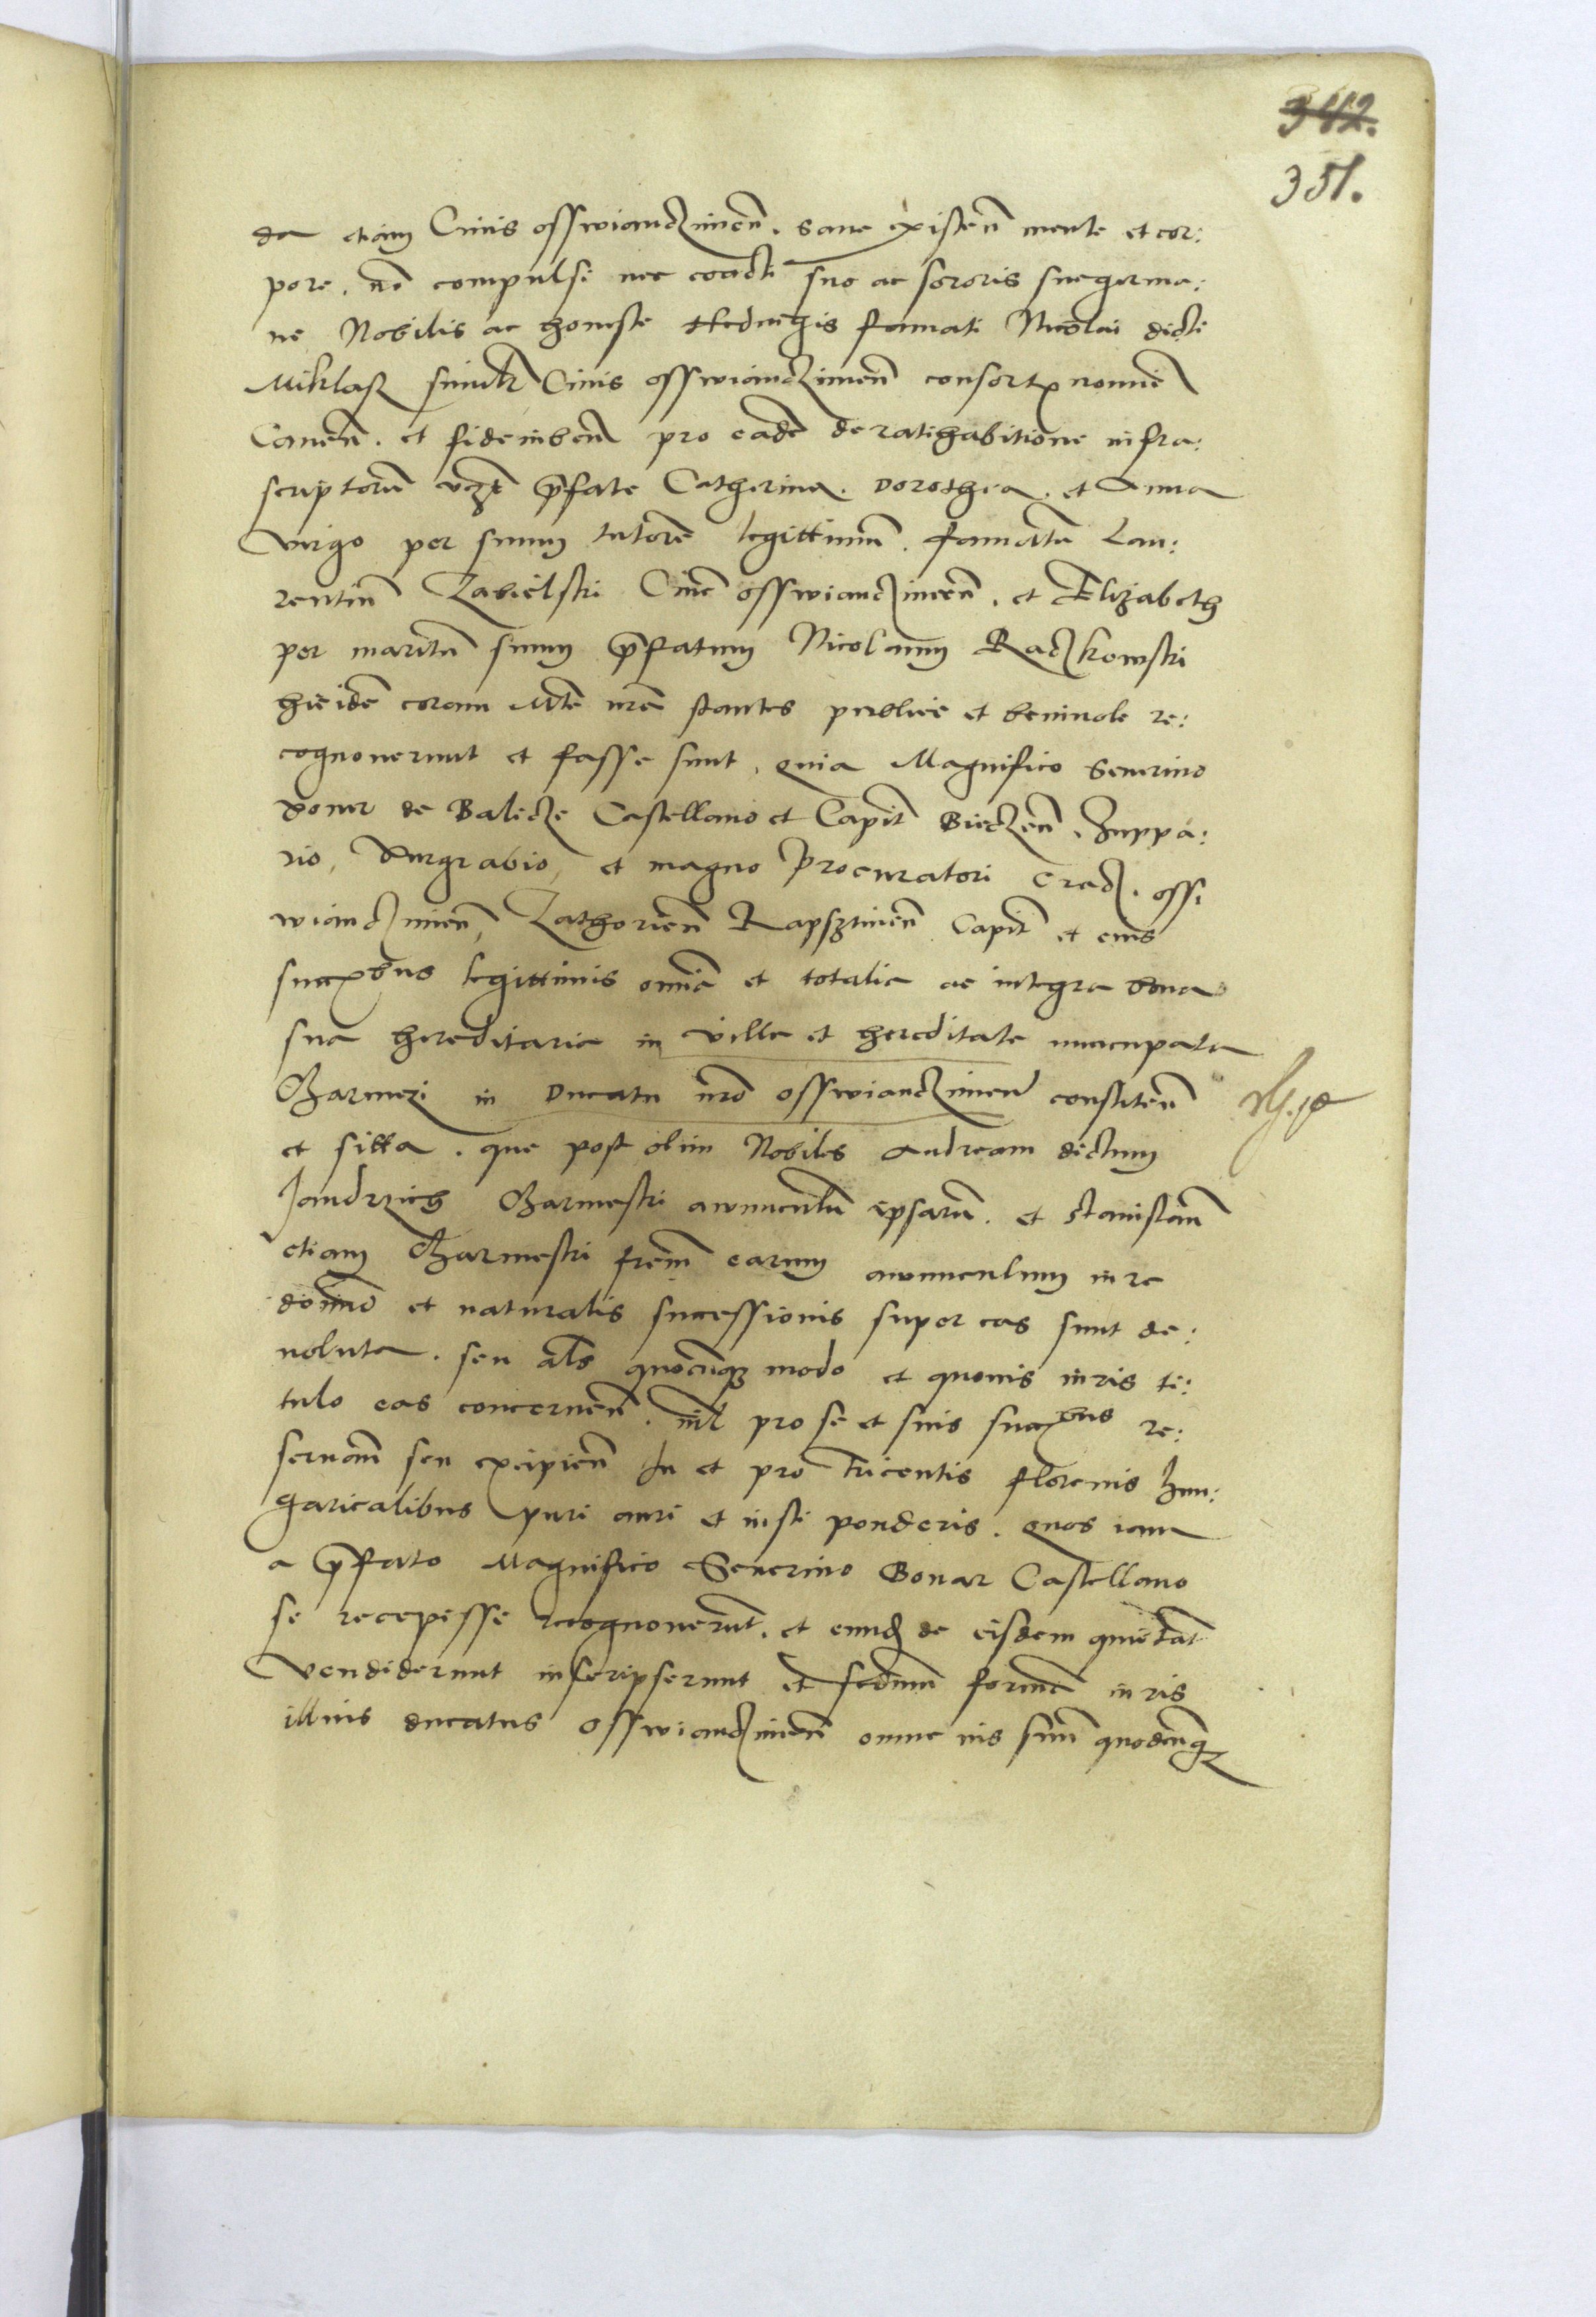 342.
351.
da etiam Civis osswianczimen̄. sane existen̄ mente et cor:
pore. nō compulse nec coacte suo ac sororis sue germa:
ne Nobilis ac honeste Hedvegis famati Nicolai dicti
Miklasz similr̄ Civis osswianczimen̄ consortꝭ nomine
Caven̄. et fideiuben̄ pro eadē de ratihabitione infra:
scriptorū vcꝫt p̄fate Catherina. Dorothea. et Anna
virgo per suum tutorē legittimū. famatū Lau:
rentiū Zabielski Civē osswianczimen̄. et Elizabeth
per maritū suum p̄fatum Nicolaum Raczkowski
hic idē coram Mte nrā stantes publice et benivole re:
cognoverunt et fasse sunt, quia Magnifico Severino
Boner de Balicze Castellano et Capit̄ Bieczen̄. Zuppa:
rio, Burgrabio, et magno Procuratori Crac. ossi
wianczimen̄, Zathorien̄ Rapsztinen̄ Capit̄ et eius
succꝭbus legittimis omīa et totalia ac integra bona
sua hereditaria in villa et hereditate nuncupata
Charmezi in Ducatu nrō osswianczimen̄ consisten̄
et sitta. que post olim Nobiles Andream dictum
Jandrzich Charmeski avunculū ipsarū. et Stanislaū
etiam Charmeski frēm earum avunculum iure
domīo et naturalis successionis super eas sunt de:
voluta. seu als̄ quocūqꝫ modo et quovis iuris ti:
tulo eas concernen̄. nil̄ pro se et suis succꝭbus re:
servan̄ seu excipien̄ In et pro Tricentis florenis hun:
garicalibus puri auri et iusti ponderis. quos iam
a p̄fato Magnifico Severino Bonar Castellano
se recepisse recognoverūt. et eund̄ de eisdem quietāt
vendiderunt inscripserunt et secdnm̄ formā iuris
illius ducatus osswianczimen̄ omne ius suū quodcūqꝫ